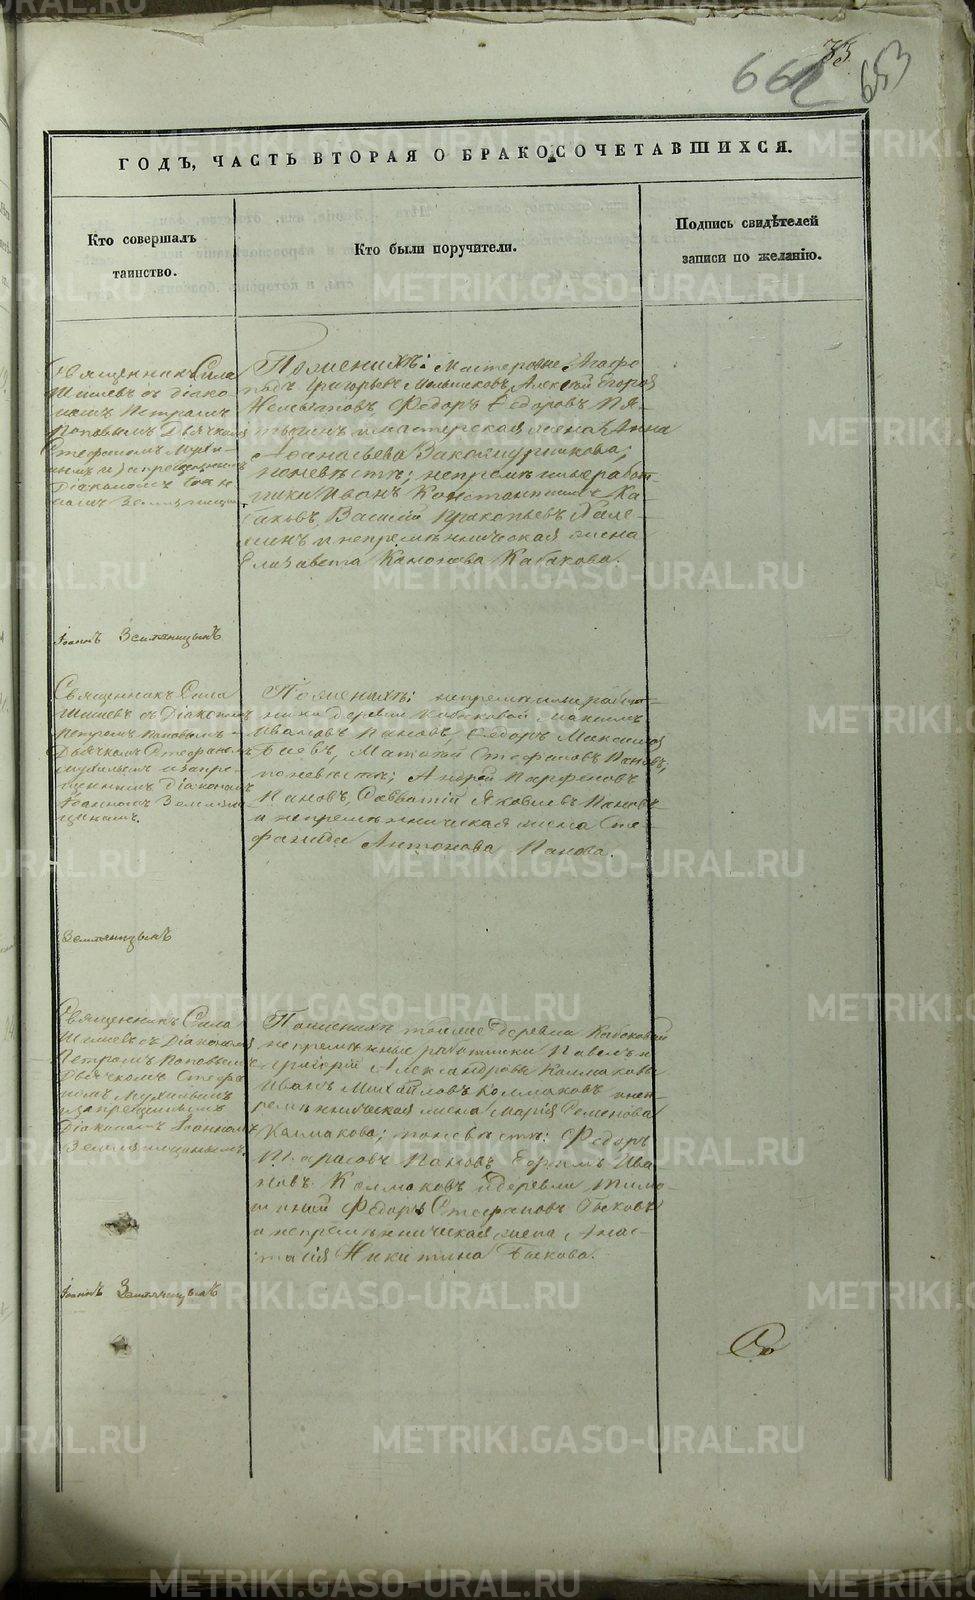 35.
662 653
ГОДЪ, ЧАСТЬ ВТОРАЯ О БРАКОСОЧЕТАВШИХСЯ.
Кто совершалъ
таинство.
Кто были поручители.
Подпись свидѣтелей
записи по желанію.
Священникъ Сила
Шишевъ съ Діако-
номъ Петромъ
Поповымъ Дьячкомъ
Стефаномъ Мухи-
нымъ и запрещеннымъ
Діакономъ Іоан-
номъ Земляницын
Іоаннъ Земляницынъ
По женихѣ: Мастеровые Агафо
подъ Григорьевъ Мельниковъ, Алексѣй Егоровъ
Немытовъ, Федоръ Федоровъ Пя-
и мастерская жена Анна
Аѳанасьева Закожурникова;
по невѣстѣ; непремѣнные работ-
ники Иванъ Константиновъ Ка-
баковъ, Василій Прокопьевъ Пале-
хинъ и непремѣнническая жена
Елизавета Кабакова.
Священникъ Сила
Шишевъ съ Діакономъ
Петромъ Поповымъ
Дьячкомъ Стефаномъ
Мухинымъ и запре-
щеннымъ Діакономъ
Іоанномъ Земляни-
цынымъ.
Земляницынъ
По женихѣ: непремѣнные работ-
ники деревни Максимъ
Ивановъ Пановъ, Федоръ Максимов
Матвей Стефановъ Пановъ,
по невѣстѣ; Андрей Парфеновъ
Пановъ, Савватій Яковлевъ Пановъ
и непремѣнническая жена Сте-
фанида Антонова Панова.
Священникъ Сила
Шишевъ съ Діакономъ
Петромъ Поповымъ
Дьячкомъ Стефа-
номъ Мухинымъ
и запрещеннымъ
Діакономъ Іоанномъ
Земляницынымъ.
Іоаннъ Земляницынъ
По женихѣ тойже деревни
непремѣнные работники Павелъ и
Григорій Александровы Калмаковы
Иванъ Михайловъ Колмаковъ и неп-
ремѣнническая жена Марія Семенова
Калмакова; по невѣстѣ: Федоръ
Тарасовъ Пановъ, Ефимъ Ива-
новъ Колмаковъ и деревни
Федоръ Стефановъ Быковъ
и непремѣнническая жена Анас-
тасія Никитина Быкова.